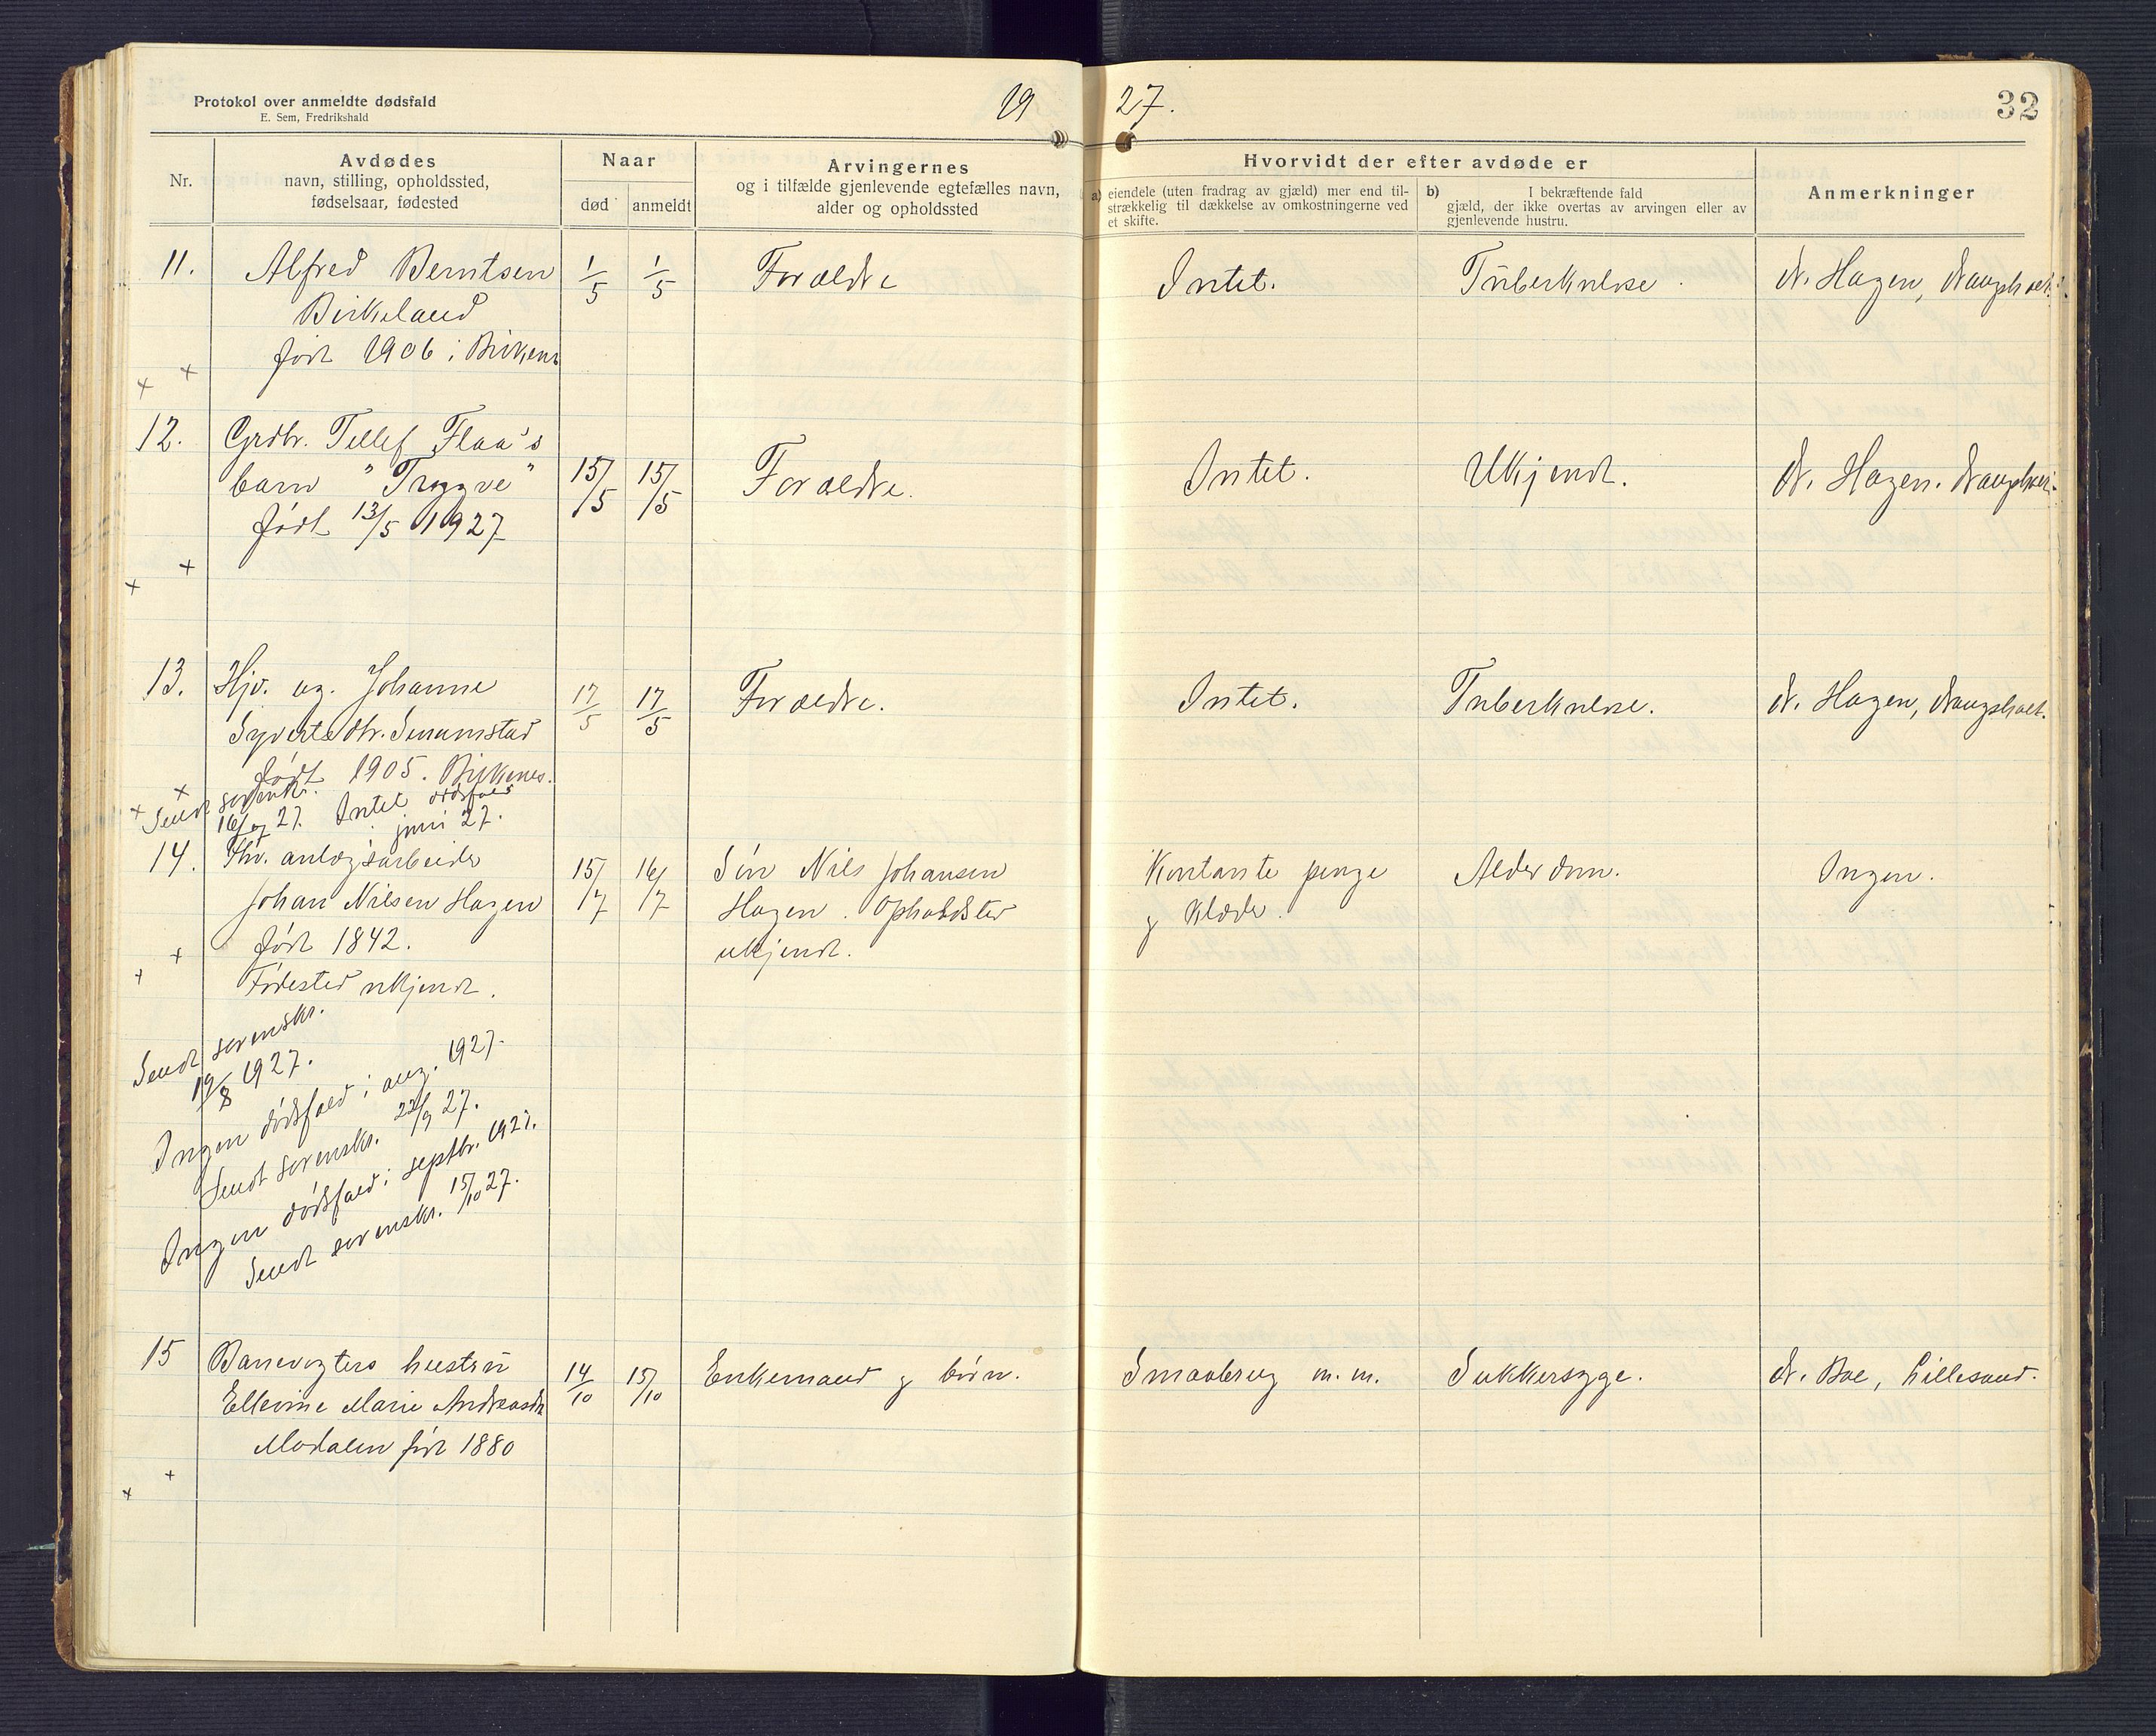 Protokol over anmeldte dødsfald
E. Sem, Fredrikshald
19 27.
32
Nr.
Avdødes
navn, stilling, opholdssted,
fødselsaar, fødested
Naar
død
anmeldt
Arvingernes
og i tilfælde gjenlevende egtefælles navn,
alder og opholdssted
Hvorvidt der efter avdøde er
a) eiendele (uten fradrag av gjæld) mer end til-
strækkelig til dækkelse av omkostningerne ved
et skifte.
b) I bekræftende fald
gjæld, der ikke overtas av arvingen eller av
gjenlevende hustru.
Anmerkninger
11. Alfred Berntsen 1/5 1/5 Forældre Intet. Tuberkulose. Dr. Hagen,
Birkeland
født 1906 i Birkenes
12. Grdbr. Tellef Flaa's
barn "Trygve" 15/5 15/5 Forældre. Intet. Ukjendt. Dr. Hagen.
født 13/5 1927
13. Hjv. ug. Johanne 17/5 17/5 Forældre. Intet. Tuberkulose. Dr. Hagen,
Syvertsdtr. Senumstad
født 1905. Birkenes.
Sendt sorenskr. Intet dødsfald
16/7 27. i juni 27.
14. Fhv. anlægsarbeider 15/7 16/7 Søn Nils Johansen Kontante penge Alderdom. Ingen.
Johan Nilsen Hagen Hagen. Opholdsted og klæder.
født 1842. ukjendt.
Fødested ukjendt.
Sendt sorenskr.
19/8 1927.
Ingen dødsfald i aug. 1927.
Sendt sorenskr. 22/9 27.
Ingen dødsfald i septbr. 1927.
Sendt sorenskr. 15/10 27.
15 Banevogters hustru 14/10 15/10 Enkemand og børn. Smaabrug m. m. Sukkersyge. Dr. Boe, Lillesand.
Ellevine Marie Andreasdtr
Modalen født 1880